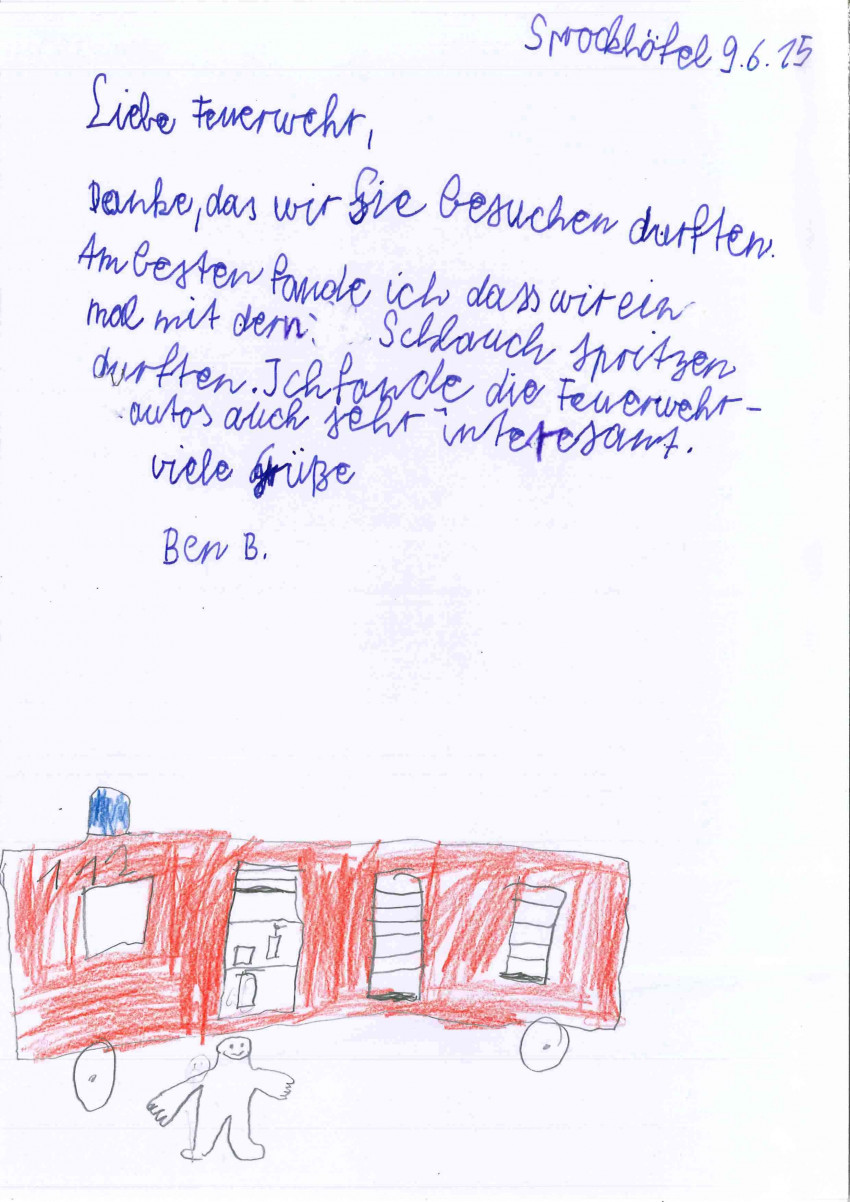 Sprockhöfel 9.6.15
Liebe Feuerwehr,
Danke, das wir Sie besuchen durften.
Am besten fande ich dass wir ein
mal mit dem Schlauch spritzen
durften. Ich fande die Feuerwehr-
autos auch sehr interesant.
viele Grüße
Ben B.
112